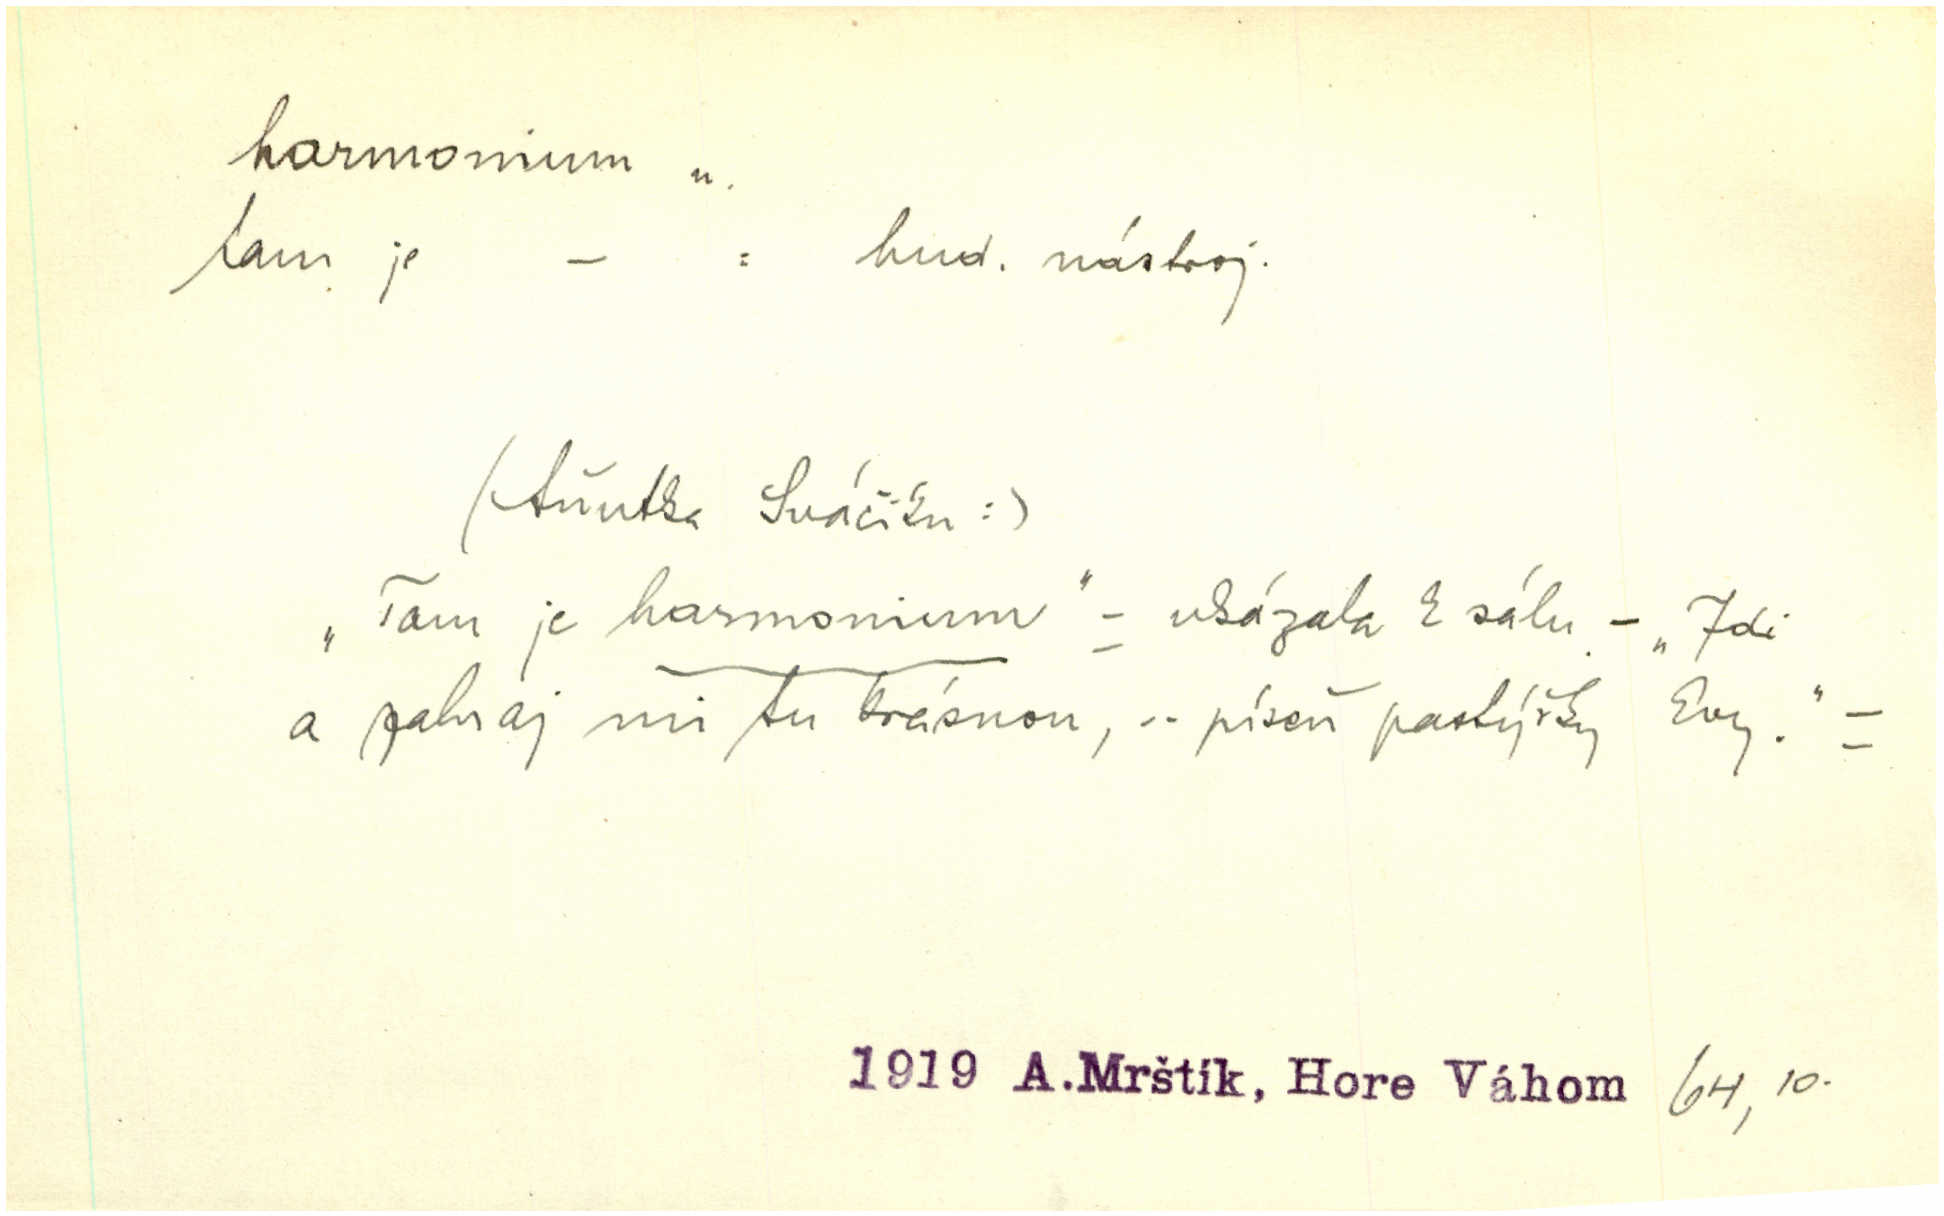 harmonium n.
tam je – : hud. nástroj.
(Anutka Sváčků:)
„Tam je harmonium" = ukázala k sálu. – „Idi
a zahraj mi tu krásnou, .. píseň pastýřky Evy." =
1919 A.Mrštík, Hore Váhom 64, 10.